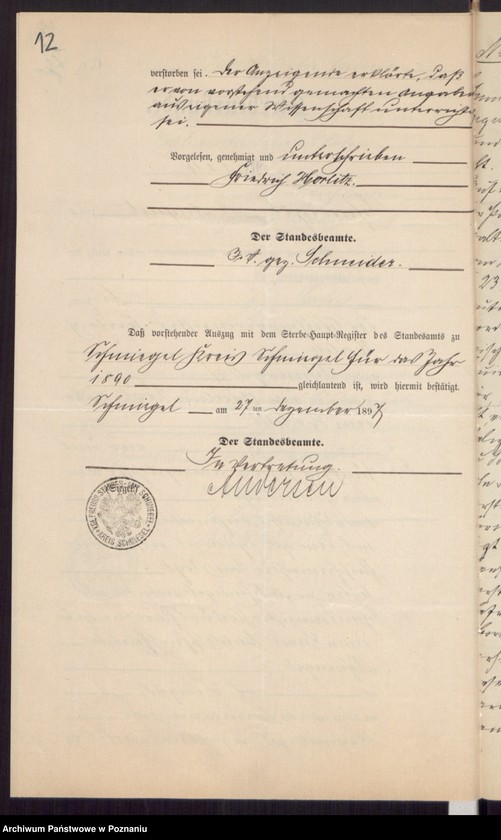 12
verstorben sei. Der Anzeigende erklärte, daß
er von vorstehend gemachten Angaben
aus eigener Wissenschaft unterrichtet
sei.
Vorgelesen, genehmigt und unterschrieben
Friedrich Horlitz.
Der Standesbeamte.
I. V. gez. Schneider.
Daß vorstehender Auszug mit dem Sterbe-Haupt-Register des Standesamts zu
Schmiegel Kreis Schmiegel für das Jahr
1890 gleichlautend ist, wird hiermit bestätigt.
Schmiegel am 27 ten Dezember 1897
Der Standesbeamte.
In Vertretung.
Andersen
(Siegel)
KREIS SCHMIEGEL
Archiwum Państwowe w Poznaniu